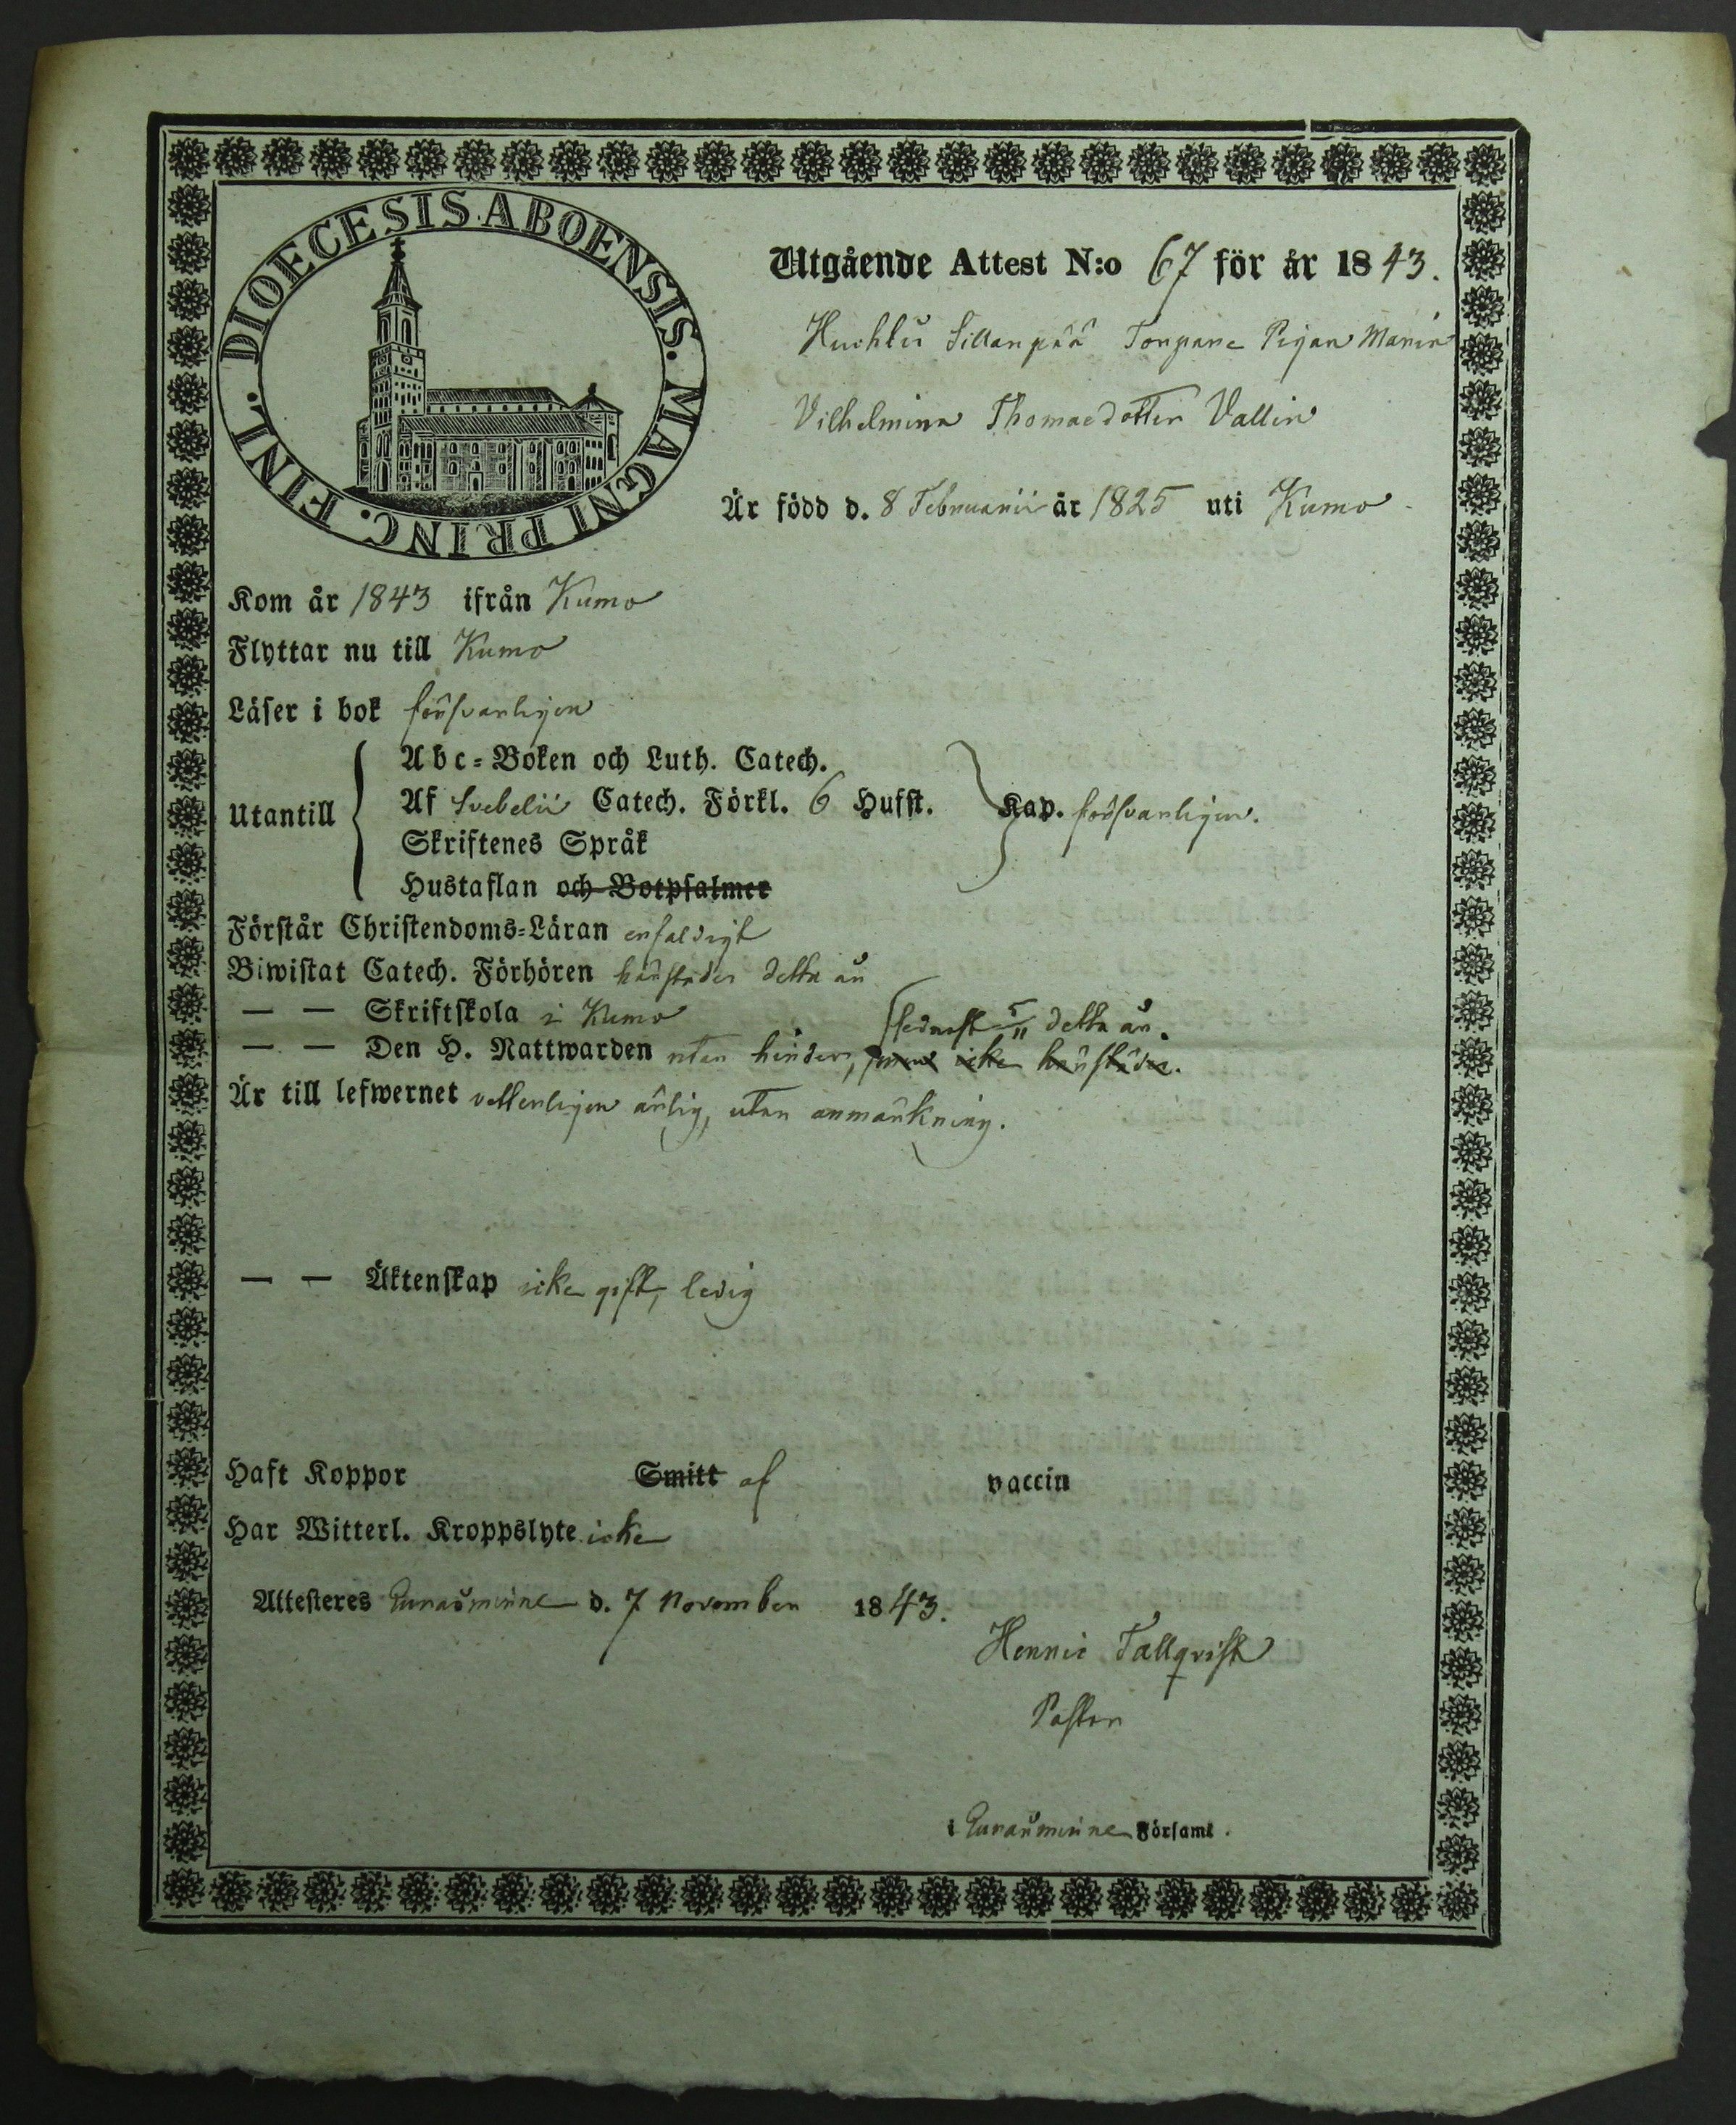 DIOECESIS ABOENSIS. MAGNI PRINC. FINL.
Utgående Attest N:o 67 för år 1843.
Sillanpää Torpare Pigan Maria
Vilhelmina Thomaedotter Vallin
Är född d. 8 Februarii år 1825 uti Kumo
Kom år 1843 ifrån Kumo
Flyttar nu till Kumo
Läser i bok försvarligen
Utantill
Abc-Boken och Luth. Catech.
Af Svebelii Catech. Förkl. 6 Hufst.
Skriftenes Språk
Hustaflan och Botpsalmer
Kap. försvarligen.
Förstår Christendoms-Läran enfaldigt
Biwistat Catech. Förhören härstädes detta år
— — Skriftskola i Kumo
sednast 5/11 detta år.
— — Den H. Nattwarden utan hinder, men icke härstädes.
Är till lefwernet vetterligen ärlig, utan anmärkning.
— — Äktenskap icke gift, ledig
Haft Koppor Smitt af vaccin
Har Witterl. Kroppslyte icke
Attesteres Euraåminne d. 7 November 1843.
Henric Tallqvist
Pastor
i Euraåminne Församl.